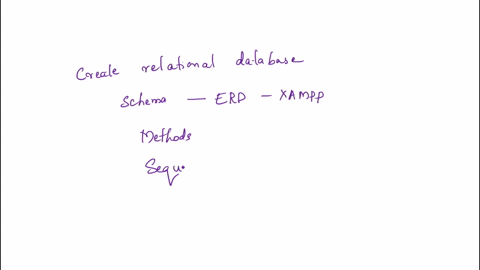 Create relational database
Schema — ERD - XAMPP
Methods
Sequ